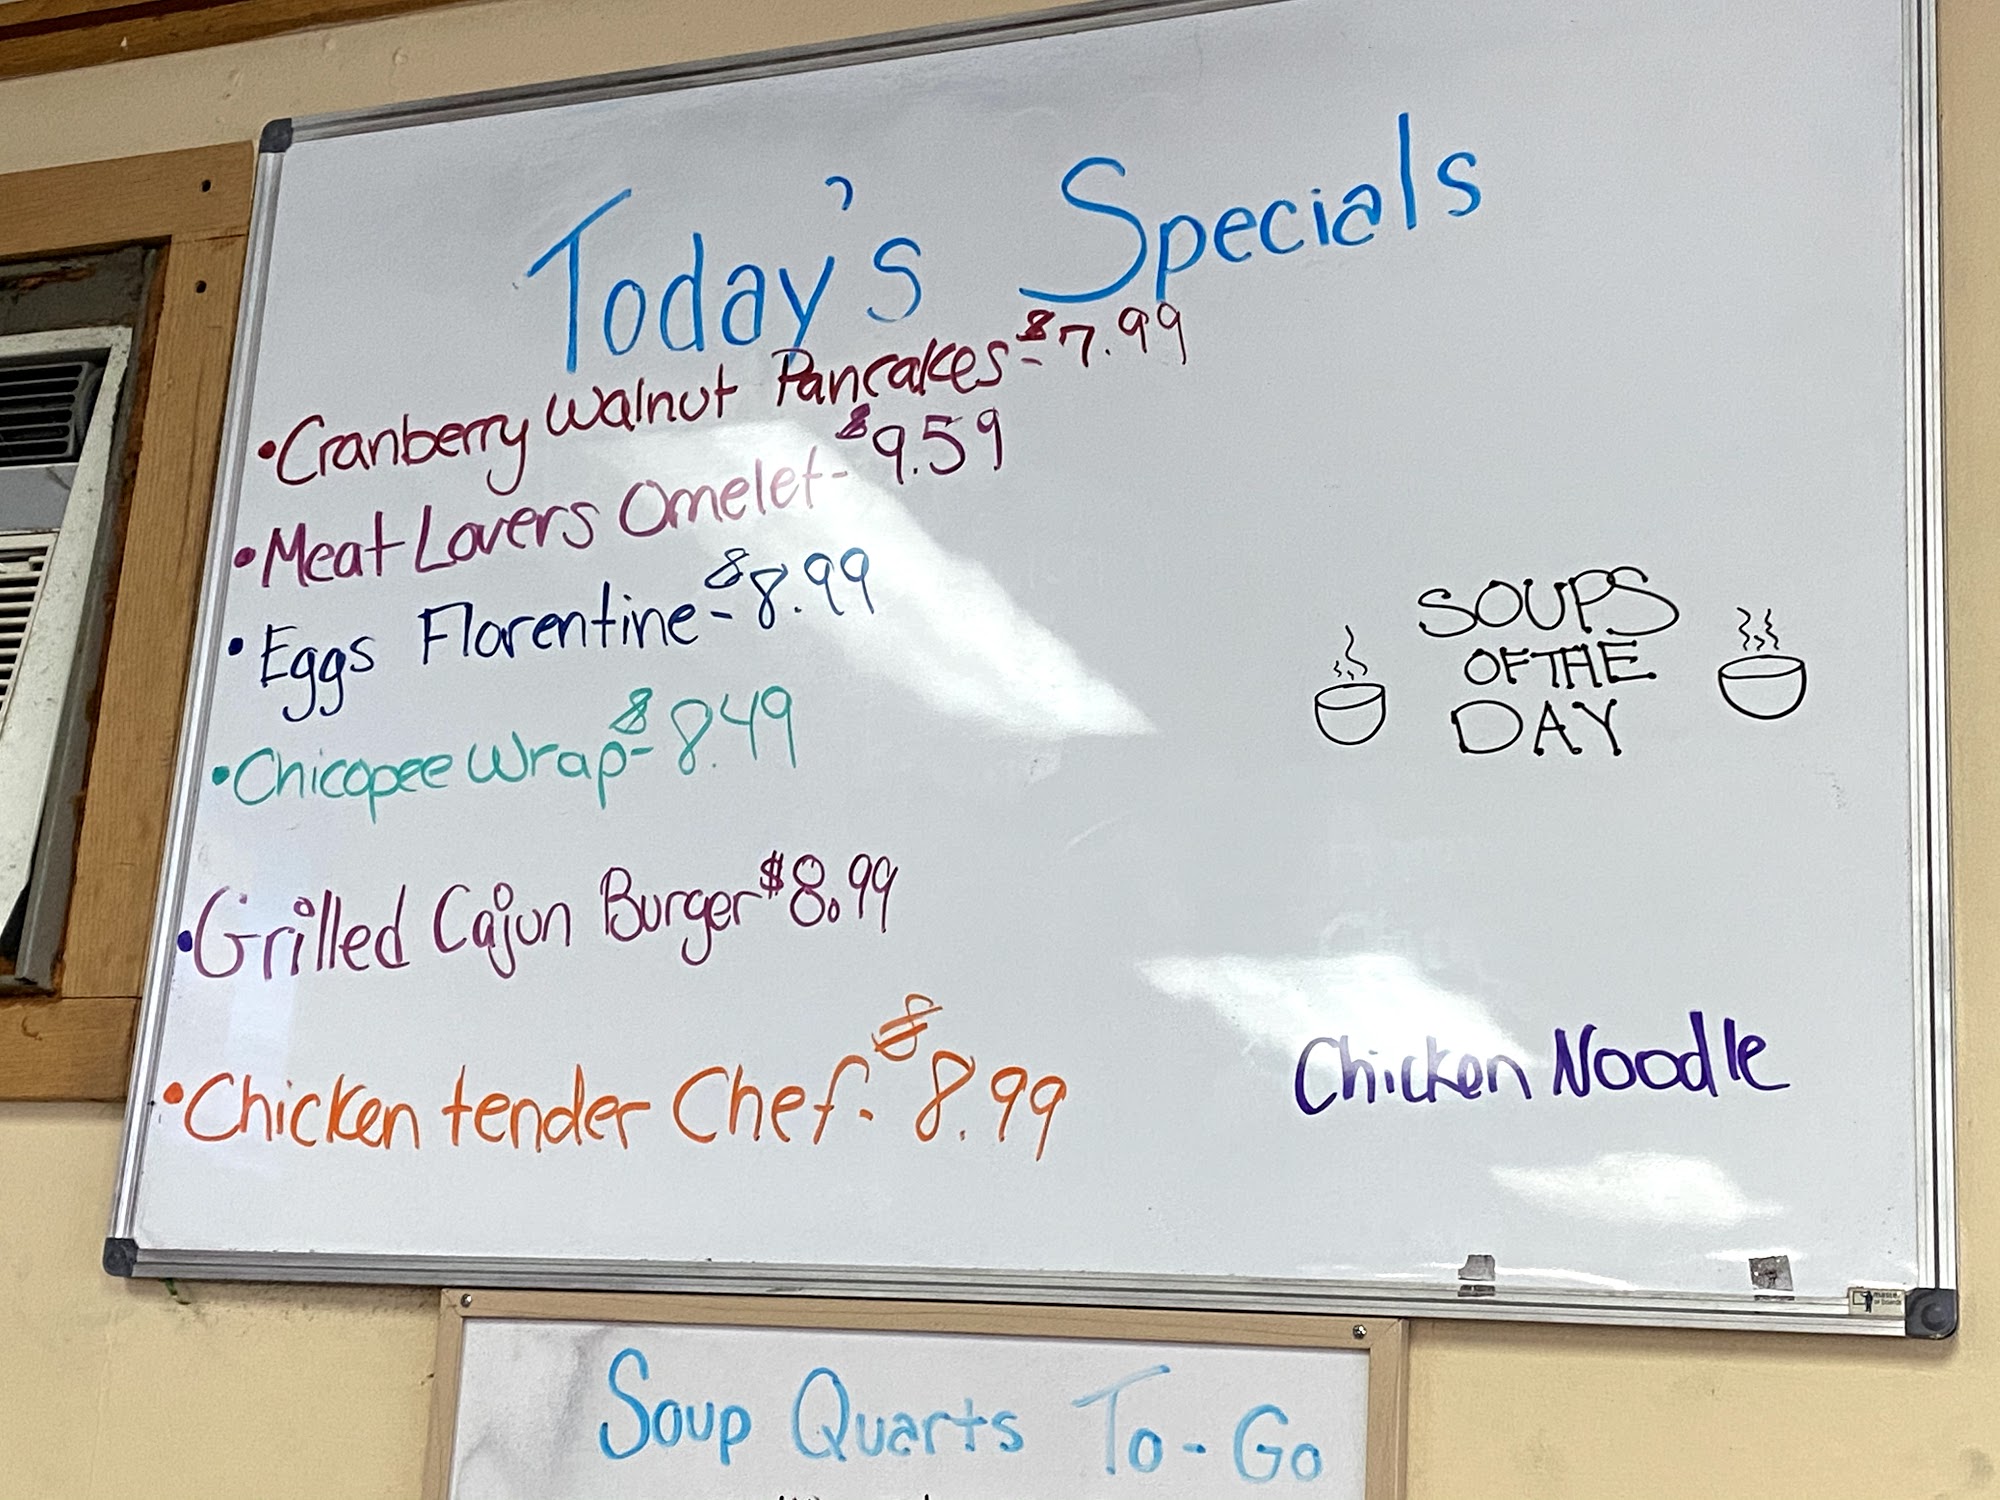 Today's Specials
•Cranberry Walnut Pancakes-$7.99
•Meat Lovers Omelet-$9.59
•Eggs Florentine-$8.99
•Chicopee Wrap-$8.49
•Grilled Cajun Burger $8.99
•Chicken tender Chef-$8.99
SOUPS
OF THE
DAY
Chicken Noodle
Soup Quarts To-Go